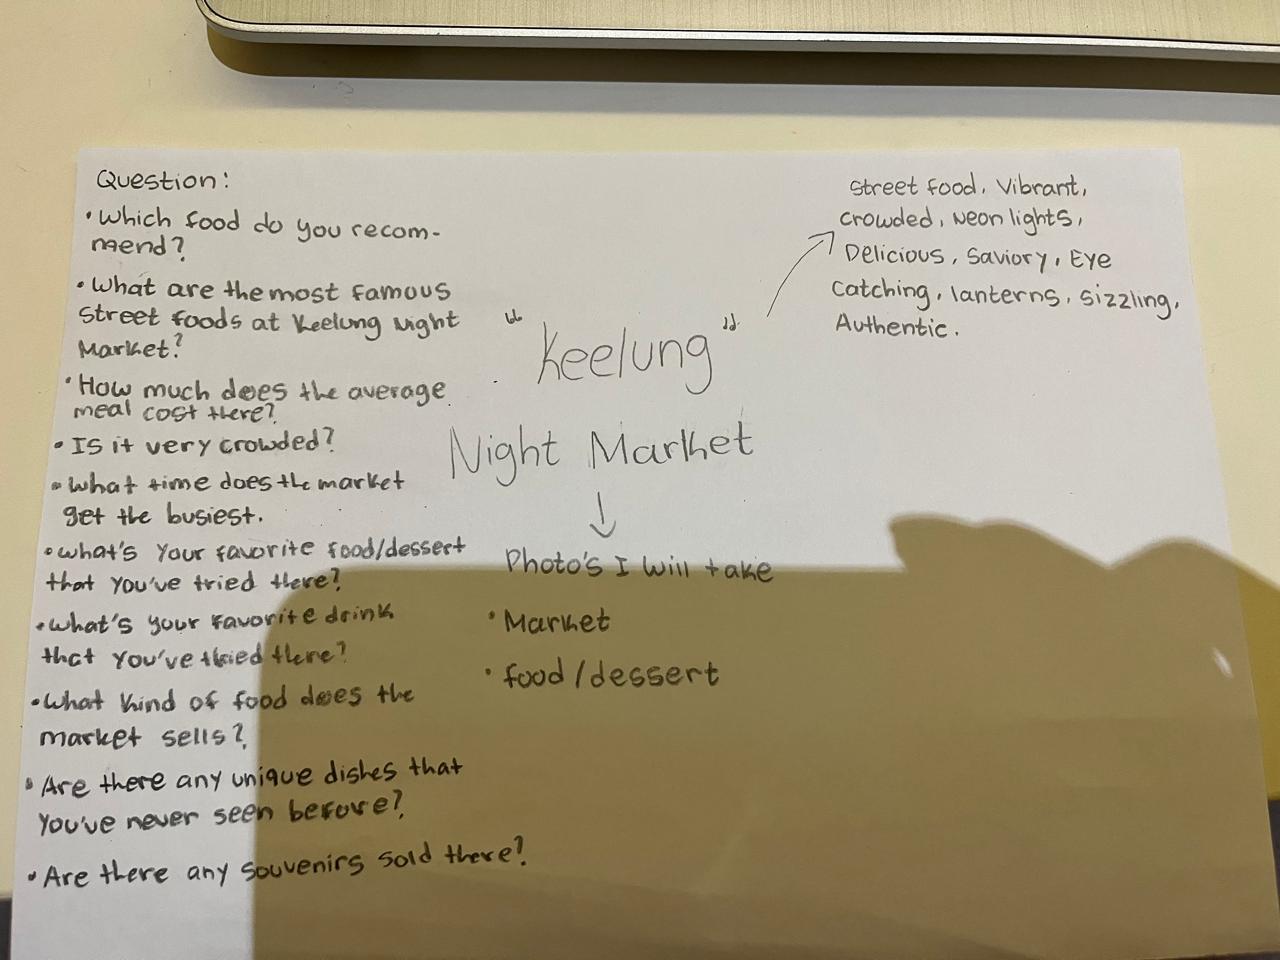 Question:
• Which food do you recom-
mend?
• What are the most famous
street foods at Keelung Night
Market?
• How much does the average
meal cost there?
• Is it very crowded?
• What time does the market
get the busiest.
• What's your favorite food/dessert
that you've tried there?
• What's your favorite drink
that you've tried there?
• What kind of food does the
market sells?
• Are there any unique dishes that
you've never seen before?
• Are there any souvenirs sold there?
"Keelung"
Night Market
↓
Photo's I will take
• Market
• food/dessert
street food, Vibrant,
crowded, Neon lights,
Delicious, Saviory, Eye
catching, lanterns, sizzling,
Authentic.